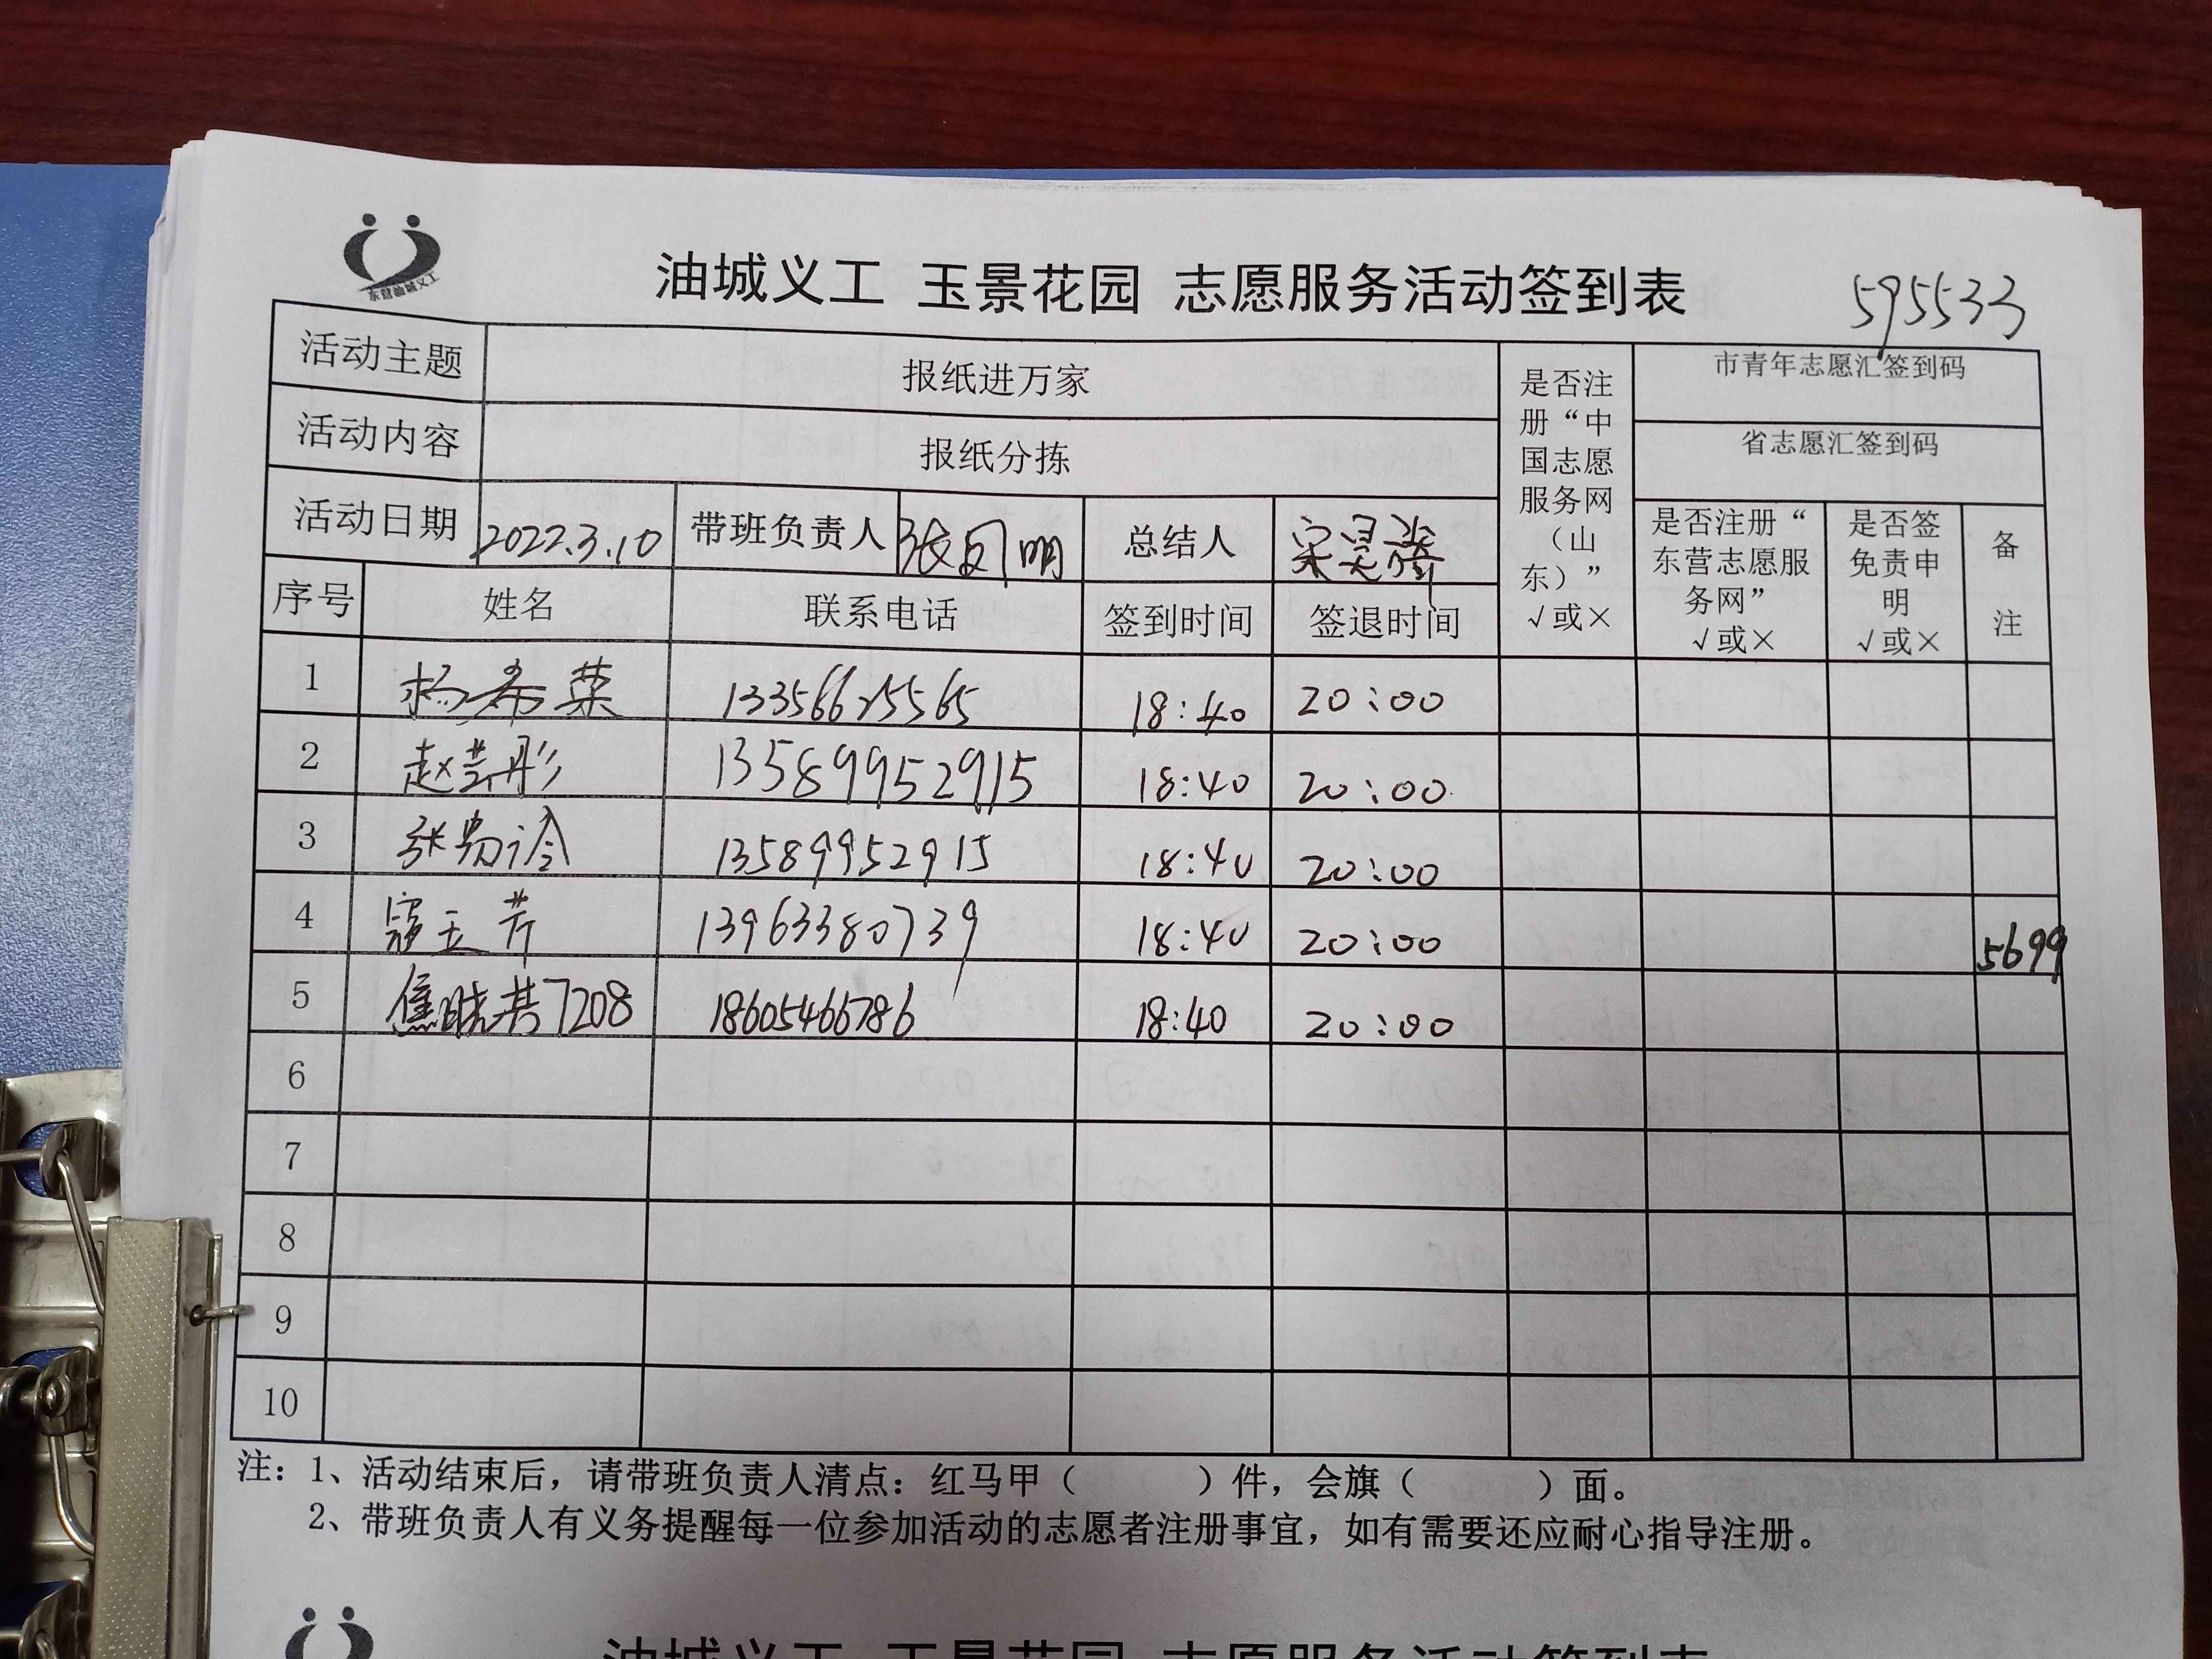 东营油城义工
油城义工 玉景花园 志愿服务活动签到表
595533
活动主题 报纸进万家 是否注册“中国志愿服务网（山东）” √或× 市青年志愿汇签到码
活动内容 报纸分拣 省志愿汇签到码
活动日期 2022.3.10 带班负责人 张 明 总结人 宋昊 是否注册“东营志愿服务网” √或× 是否签免责申明 √或× 备注
序号 姓名 联系电话 签到时间 签退时间
1 杨希荣 13356625565 18:40 20:00
2 赵芸彤 13589952915 18:40 20:00
3 张 13589952915 18:40 20:00
4 寇玉芹 13963380739 18:40 20:00 5699
5 焦晓 7208 18605466786 18:40 20:00
6
7
8
9
10
注：1、活动结束后，请带班负责人清点：红马甲（ ）件，会旗（ ）面。
2、带班负责人有义务提醒每一位参加活动的志愿者注册事宜，如有需要还应耐心指导注册。
油城义工 玉景花园 志愿服务活动签到表